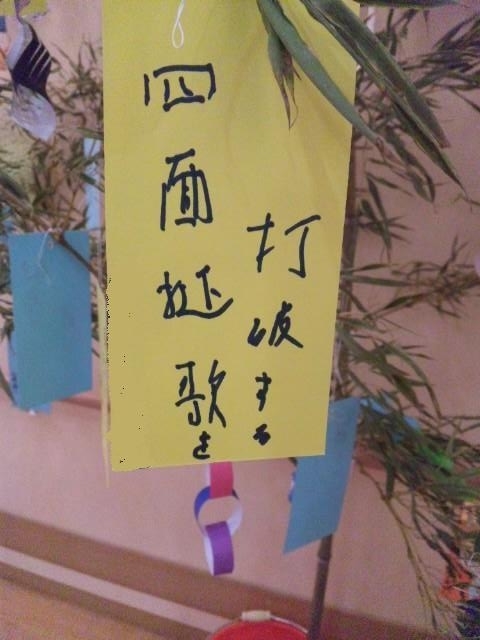 四面楚歌を
打破する